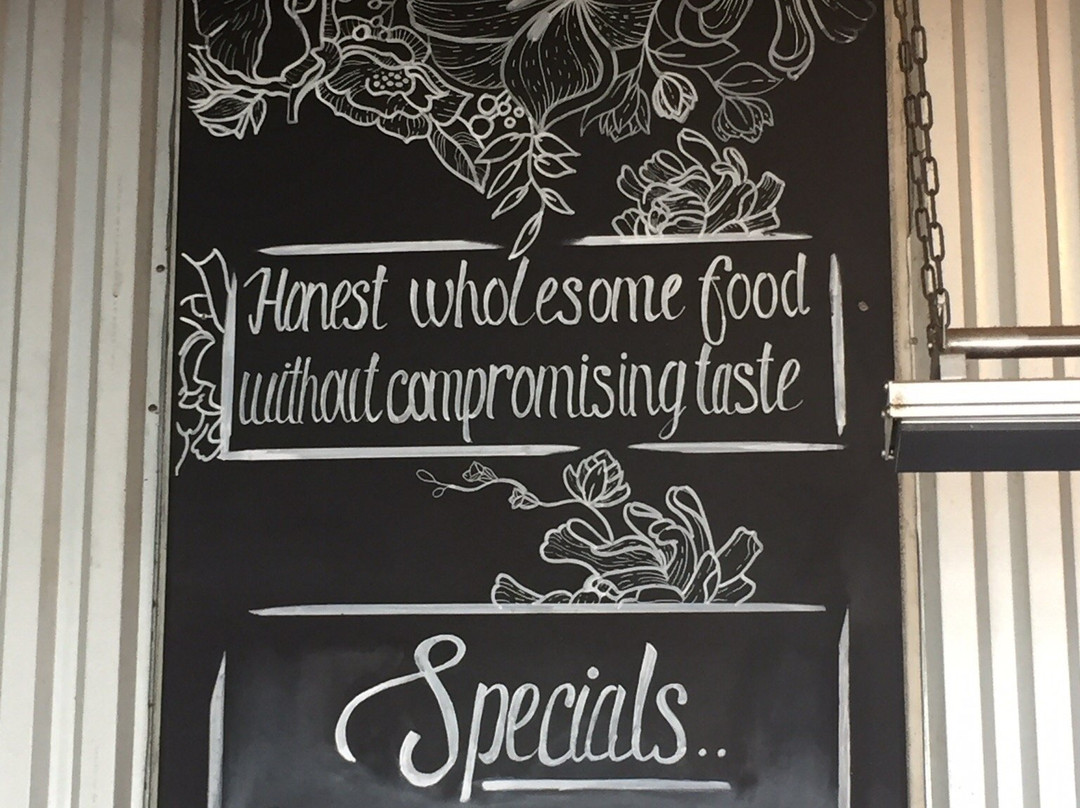 Honest wholesome food
without compromising taste
Specials..